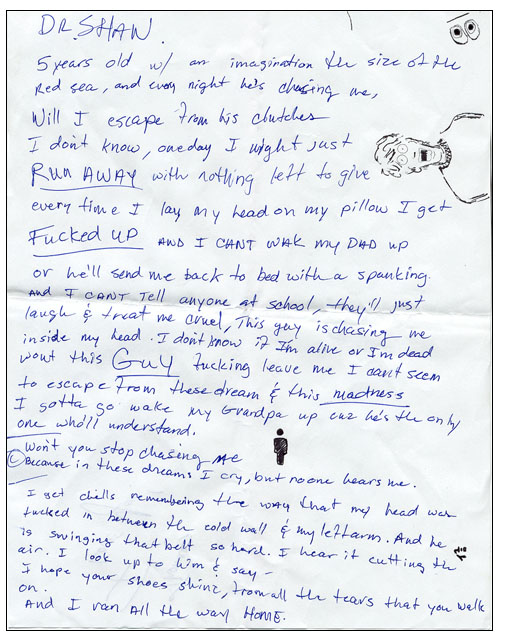 DR. SHAN
5 years old w/ an imagination the size of the
Red sea, and every night he's chasing me,
Will I escape from his clutches
I don't know, oneday I might just
RUN AWAY with nothing left to give
every time I lay my head on my pillow I get
Fucked UP AND I CANT WAK my DAD up
or he'll send me back to bed with a spanking.
AND I CANT Tell anyone at school, they'll just
laugh & treat me cruel, This guy is chasing me
inside my head. I don't know if I'm alive or I'm dead
wont this GUY fucking leave me I cant seem
to escape from these dream & this madness
I gotta go wake my Grandpa up cuz he's the only
one who'll understand.
Won't you stop chasing me
C Because in these dreams I cry, but no one hears me.
I get chills remembering the way that my head was
tucked in between the cold wall & my left arm. And he
is swinging that belt so hard. I hear it cutting the
air. I look up to him & say -
I hope your shoes shine, from all the tears that you walk
on.
And I ran All the way HOME.